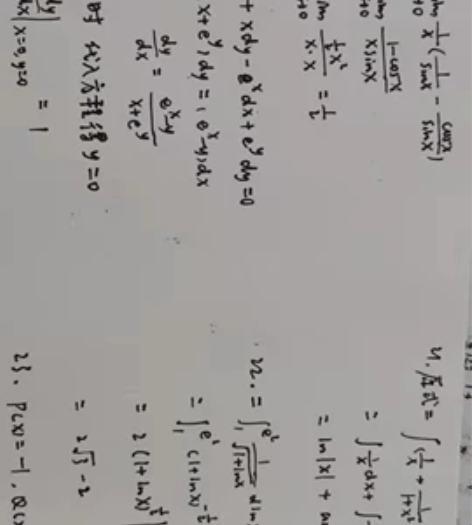 1/x (1/sinx - cosx/sinx)
1-cosx / xsinx
½x² / x·x = 1/2
+ xdy - e^x dx + e^y dy = 0
x+e^y)dy = (e^x-y)dx
dy/dx = e^x-y / x+e^y
时 代入方程得 y=0
|x=0,y=0 = 1
21. 原式 = ∫(1/x + 1/1+x²
= ∫ 1/x dx + ∫
= ln|x| +
22. = ∫₁^e² 1/√1+lnx dln
= ∫₁^e² (1+lnx)^-½
= 2(1+lnx)^½
= 2√3 - 2
23. P(x) = -1, Q(x